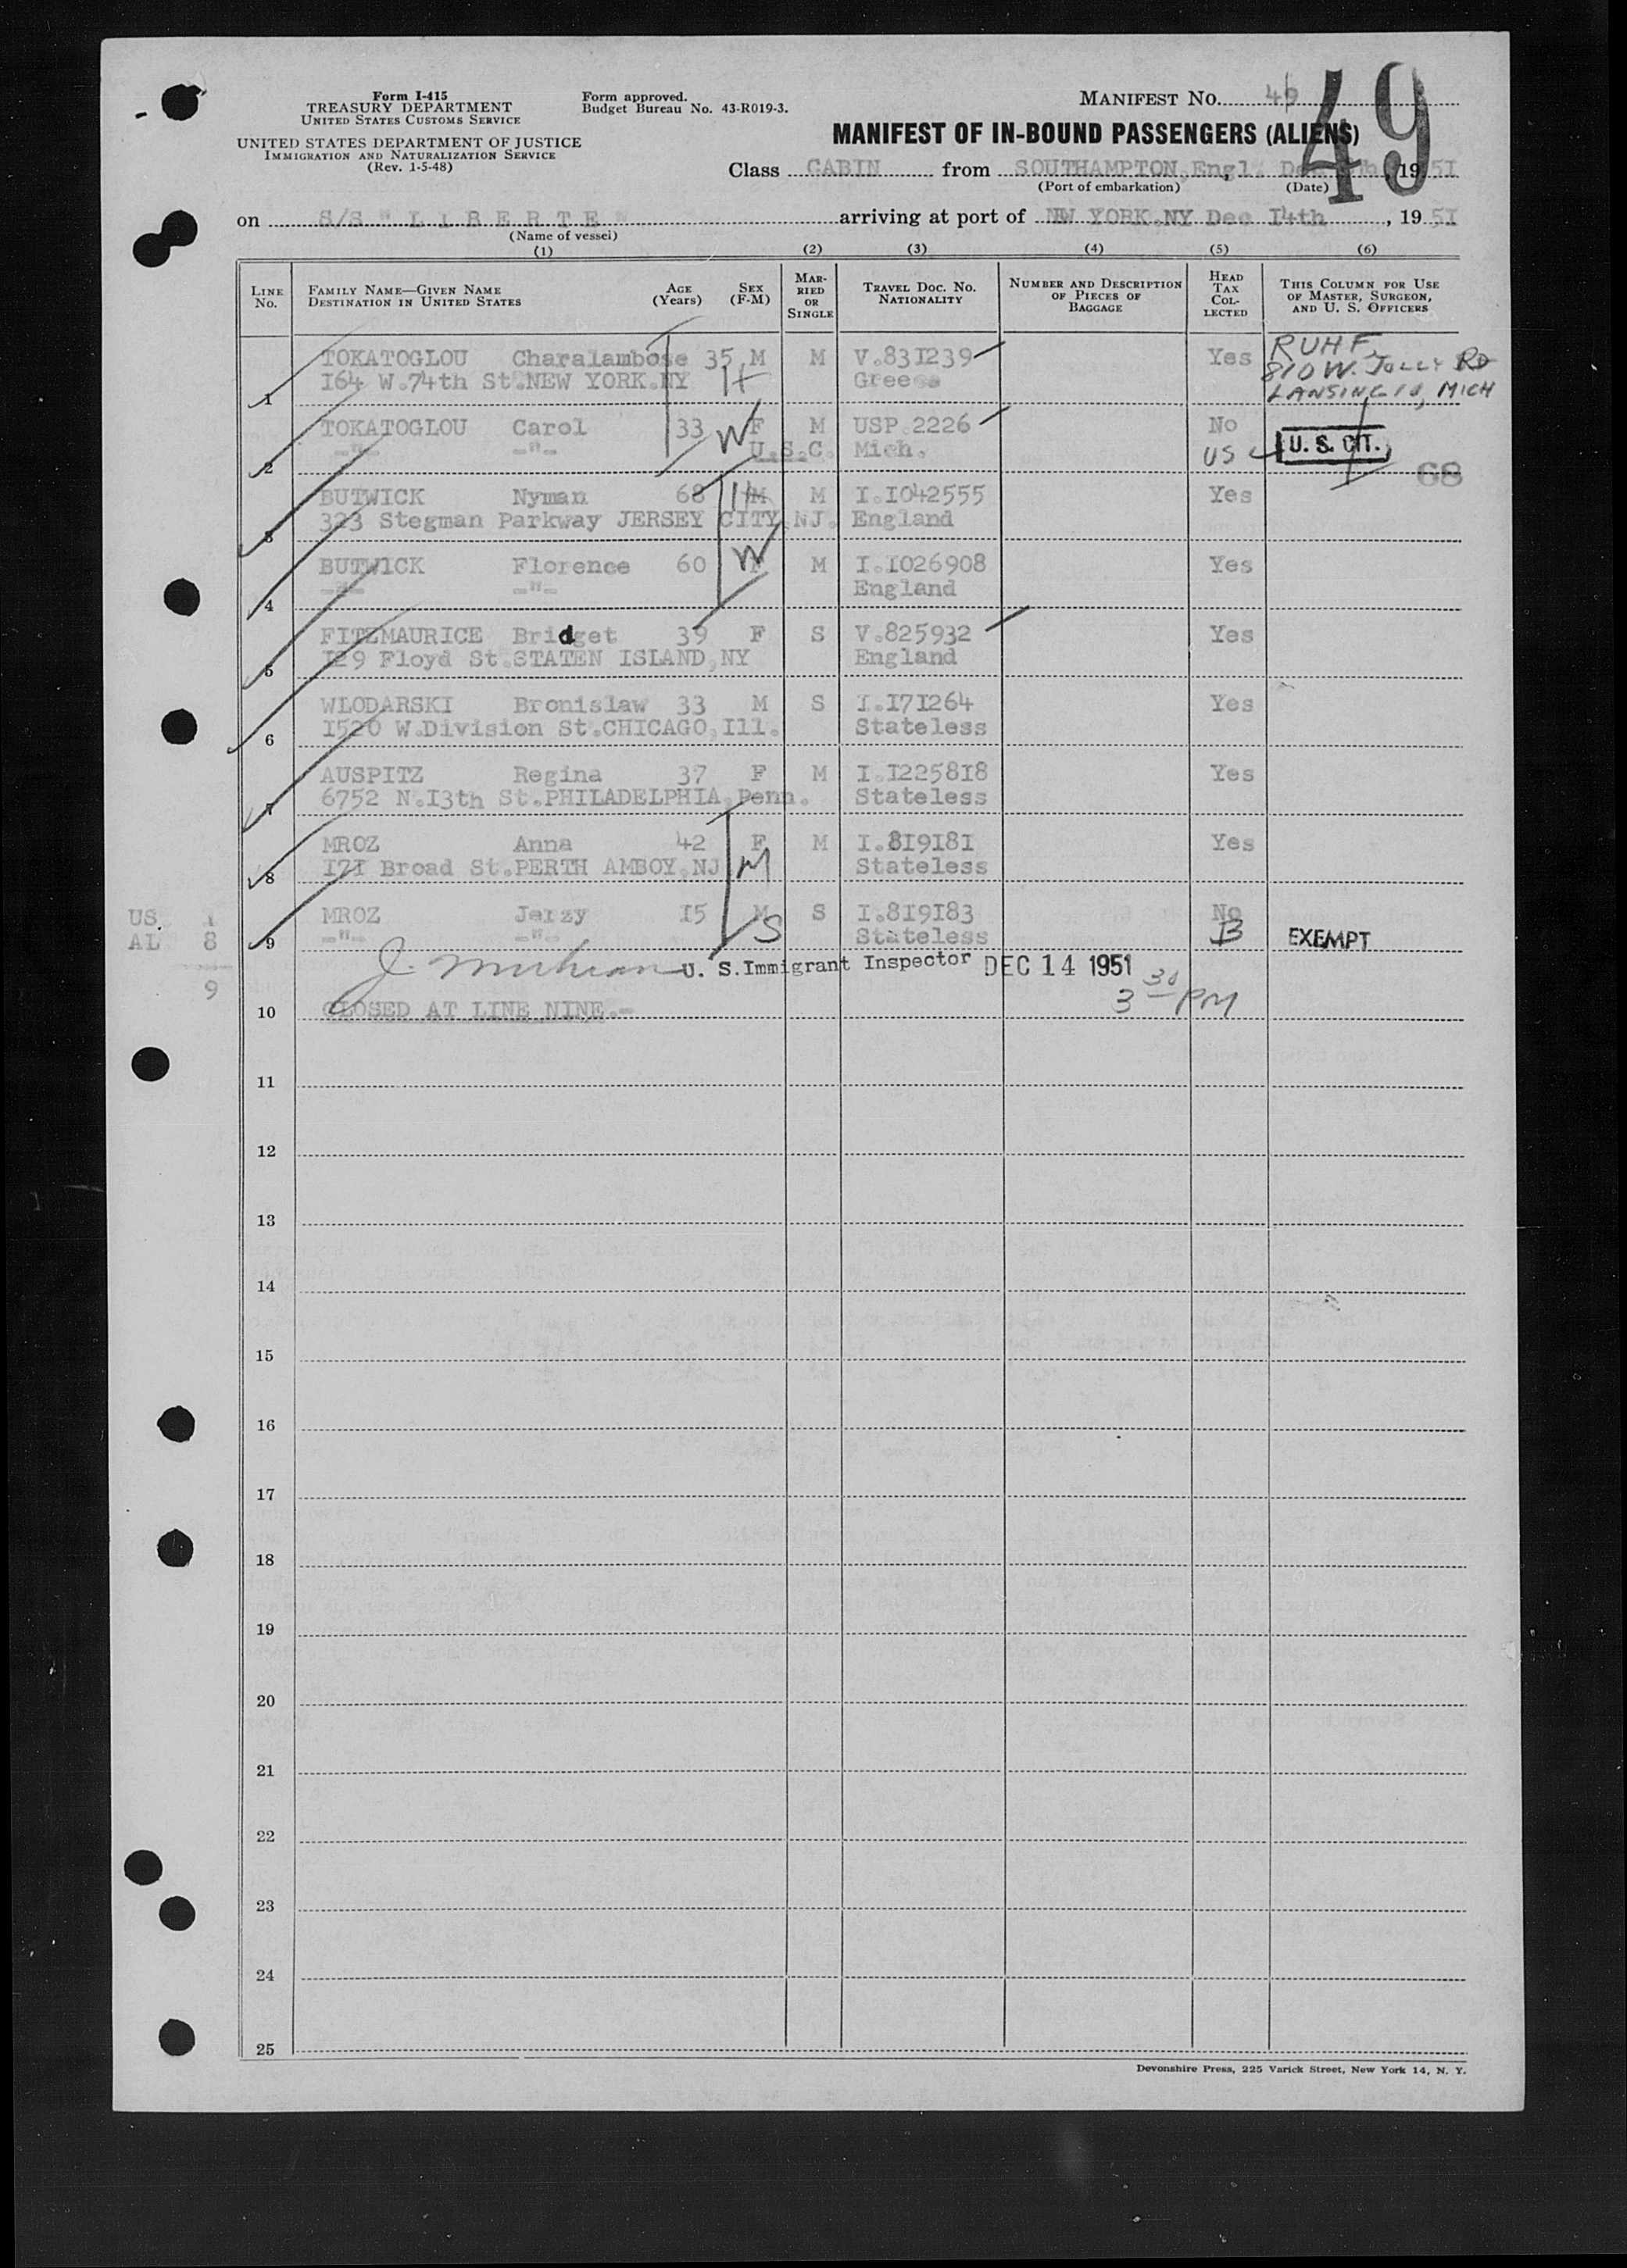 Form I-415
TREASURY DEPARTMENT
UNITED STATES CUSTOMS SERVICE
UNITED STATES DEPARTMENT OF JUSTICE
IMMIGRATION AND NATURALIZATION SERVICE
(Rev. 1-5-48)
Form approved.
Budget Bureau No. 43-R019-3.
MANIFEST NO.
49
MANIFEST OF IN-BOUND PASSENGERS (ALIENS)
Class CABIN from SOUTHAMPTON,Engl. , 1951
(Port of embarkation) (Date)
on S/S " L I B E R T E " arriving at port of NEW YORK.NY Dec 14th , 1951
(Name of vessel)
(1) (2) (3) (4) (5) (6)
LINE No. FAMILY NAME—GIVEN NAME DESTINATION IN UNITED STATES AGE (Years) SEX (F-M) MARRIED OR SINGLE TRAVEL DOC. NO. NATIONALITY NUMBER AND DESCRIPTION OF PIECES OF BAGGAGE HEAD TAX COLLECTED THIS COLUMN FOR USE OF MASTER, SURGEON, AND U. S. OFFICERS
1 TOKATOGLOU Charalambose 35 M M V.831239 Yes RUHF
164 W.74th St.NEW YORK.NY H Greece 810 W. JOLLY RD
LANSING 10, MICH
2 TOKATOGLOU Carol 33 W F M USP.2226 No
-"- -"- U.S.C. Mich. US U. S. CIT.
68
3 BUTWICK Nyman 68 H M M I.1042555 Yes
323 Stegman Parkway JERSEY CITY,NJ. England
4 BUTWICK Florence 60 W F M I.1026908 Yes
-"- -"- England
5 FITZMAURICE Bridget 39 F S V.825932 Yes
129 Floyd St.STATEN ISLAND,NY England
6 WLODARSKI Bronislaw 33 M S I.171264 Yes
1520 W.Division St.CHICAGO,Ill. Stateless
7 AUSPITZ Regina 37 F M I.1225818 Yes
6752 N.13th St.PHILADELPHIA,Penn. Stateless
8 MROZ Anna 42 F M I.819181 Yes
171 Broad St.PERTH AMBOY,NJ M Stateless
US 1
AL 8
9
9 MROZ Jerzy 15 M S I.819183 No
-"- -"- S Stateless B EXEMPT
U. S. Immigrant Inspector DEC 14 1951
3 30 PM
10 CLOSED AT LINE NINE.-
11
12
13
14
15
16
17
18
19
20
21
22
23
24
25
Devonshire Press, 225 Varick Street, New York 14, N. Y.